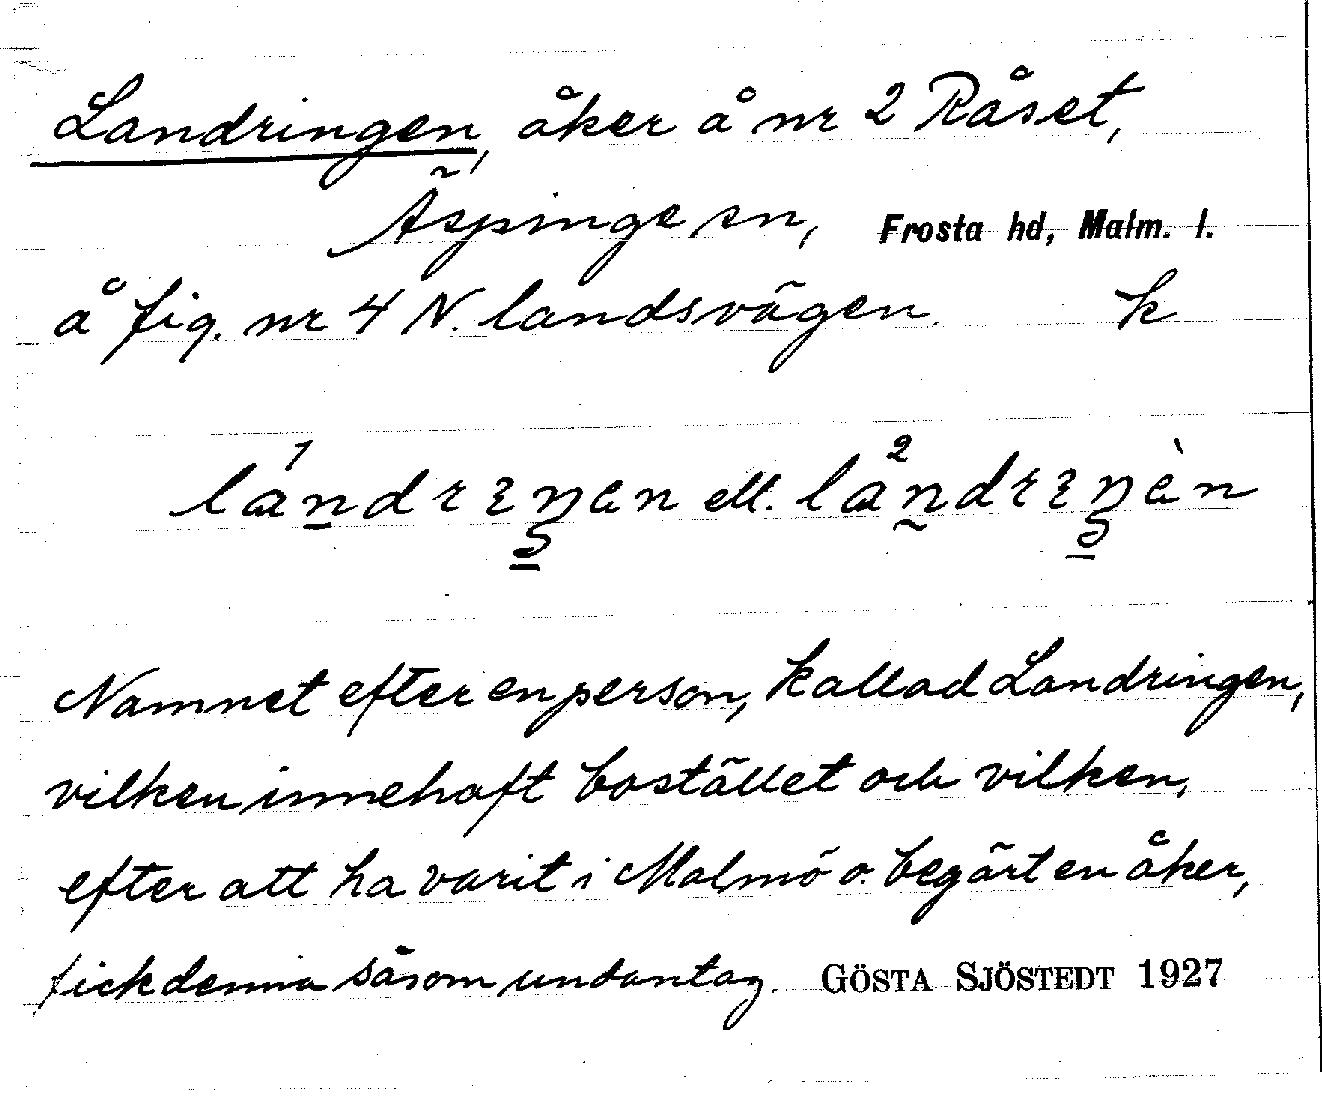 Landringen, åker å nr 2 Råset,
Äspinge sn, Frosta hd, Malm. l.
å fig. nr 4 N. landsvägen. k
ell.
Namnet efter en person, kallad Landringen,
vilken innehaft bostället och vilken,
efter att ha varit i Malmö o. begärt en åker,
fick denna såsom undantag. GÖSTA SJÖSTEDT 1927